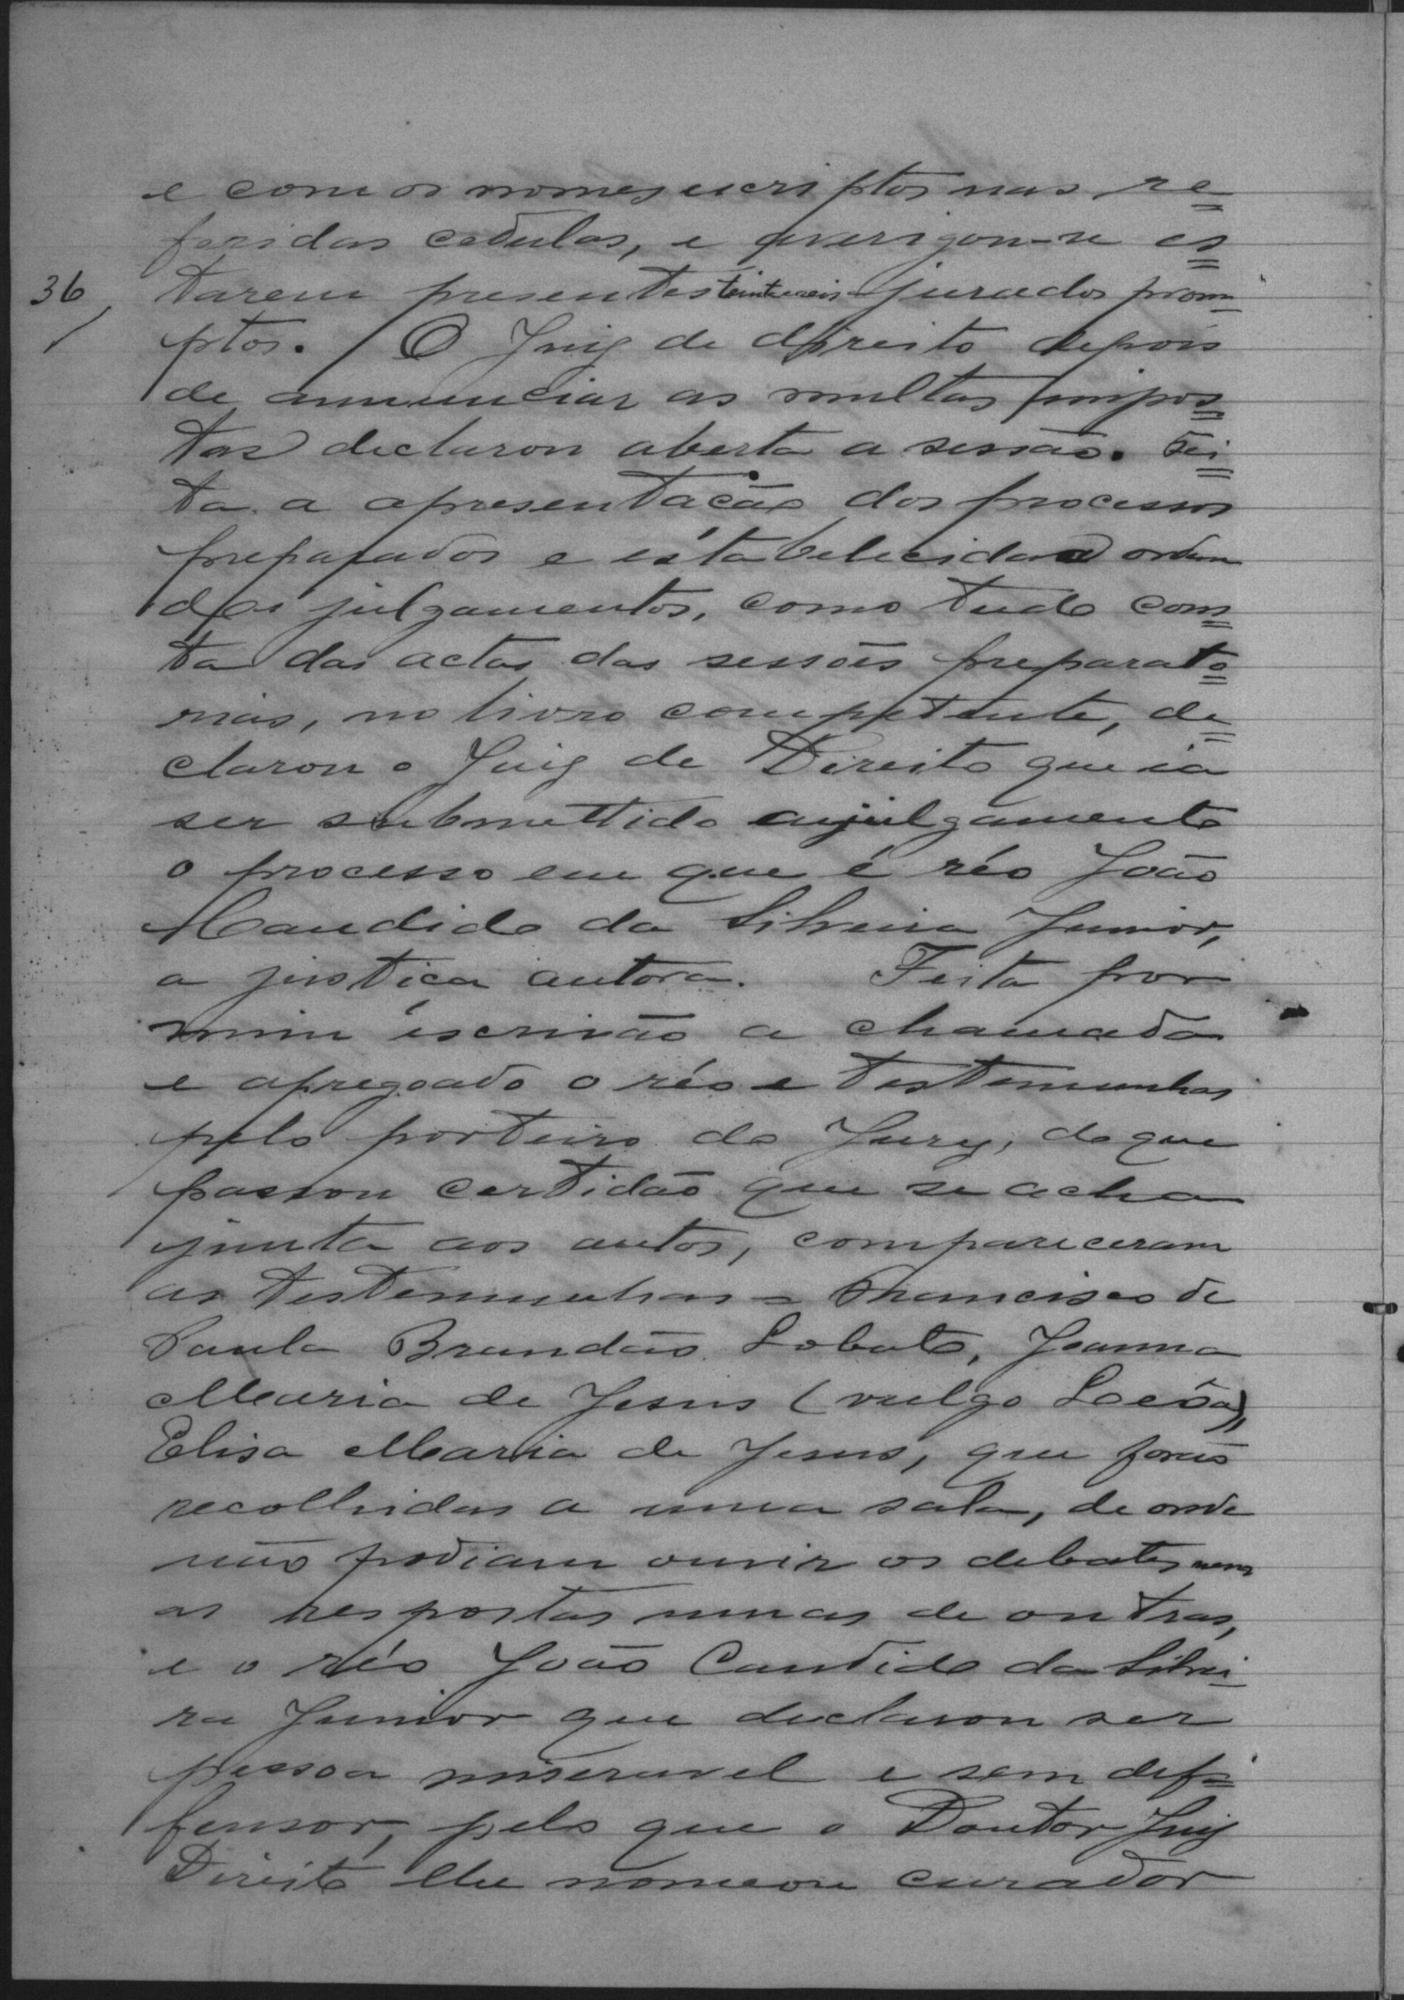 e com os nomes escriptos nas re=
feridas cedulas, e averigou-se es=
36 tarem presentes trinta e seis jurados prom=
ptos. O Juiz de direito depois
de annunciar as multas impos=
tas declarou aberta a sessão. Fei=
ta a apresentação dos processos
preparados e estabelecida a ordem
dos julgamentos, como tudo cons=
ta das actas das sessões preparato=
rias, no livro competente, de=
clarou o Juiz de Direito que ia
ser submettido a julgamento
o processo em que é réo João
Candido da Silveira Junior,
a justiça autora. Feita por
mim escrivão a chamada
e apregoado o réo e testemunhas
pelo porteiro do Jury, do que
passou certidão que se acha
junta aos autos, compareceram
as testemunhas = Francisco de
Paula Brandão Lobato, Joanna
Maria de Jesus (vulgo
Elisa Maria de Jesus, que forão
recolhidas a uma sala, de onde
não podiam ouvir os debates nem
as respostas umas de outras,
e o réo João Candido da Silvei=
ra Junior que declarou ser
pessoa miseravel e sem def=
fensor, pelo que o Doutor Juiz
Direito lhe nomeou curador